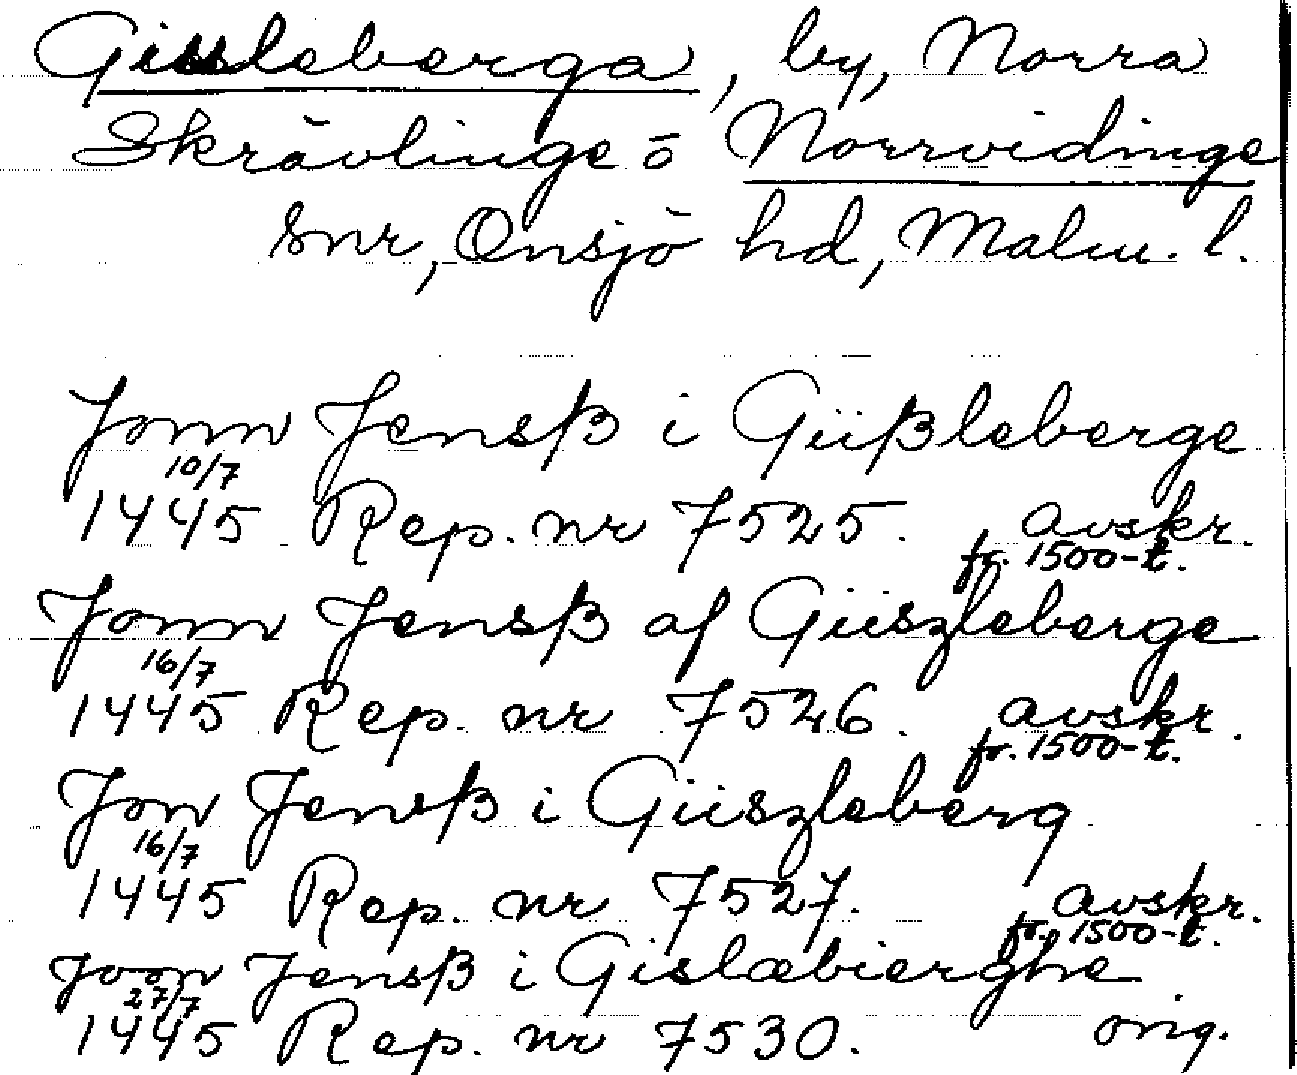 Gissleberga, by, Norra
Skrävlinge o Norrvidinge
snr, Onsjö hd, Malm. l.
Jonn Jensß i Güßleberge
10/7
1445 Rep. nr 7525. avskr.
fr. 1500-t.
Jonn Jensß af Güszleberge
16/7
1445 Rep. nr 7526. avskr.
fr. 1500-t.
Jon Jensß i Güszleberg
16/7
1445 Rep. nr 7527. avskr.
fr. 1500-t.
Joon Jensß i Gislæbierghe
27/7
1445 Rep. nr 7530. orig.